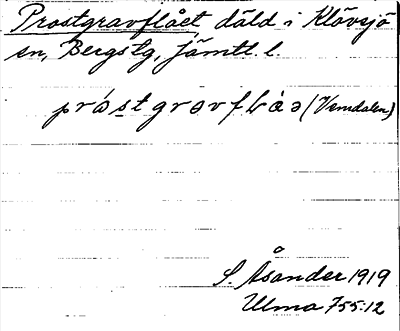 Prostgravflået, däld i Klövsjö
sn, Bergstg, Jämtl. l.
(Vemdalen)
S. Åsander 1919
Ulma 755:12